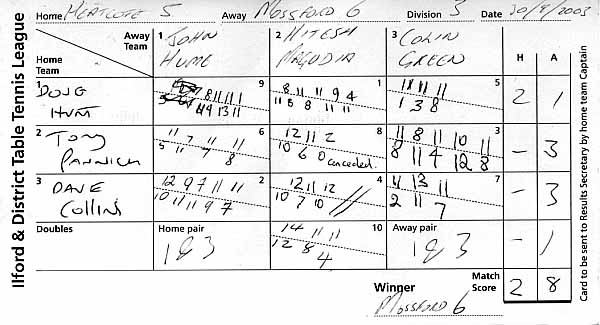 Home HEATCOTE 5 Away MOSSFORD 6 Division 3 Date 30/9/2003
Ilford & District Table Tennis League
Away Team 1 JOHN HUME 2 HITESH MAGUDIA 3 COLIN GREEN H A
Home Team
1 DOUG HUNT 9 1 5 2 1
8 11 11 1 8 11 11 9 4 11 11 11
11 9 13 11 11 8 8 11 11 1 3 8
2 TONY PANNICH 6 8 3 - 3
11 7 11 11 12 11 2 11 8 11 10 11
5 11 7 8 10 6 0 conceded 8 11 4 12 8
3 DAVE COLLINS 2 4 7 - 3
12 9 7 11 11 12 11 12 4 13 11
10 11 11 9 7 10 7 10 2 11 7
Doubles Home pair 10 Away pair - 1
1&3 14 11 11 1&3
12 8 4
Winner Match Score 2 8
MOSSFORD 6
Card to be sent to Results Secretary by home team Captain